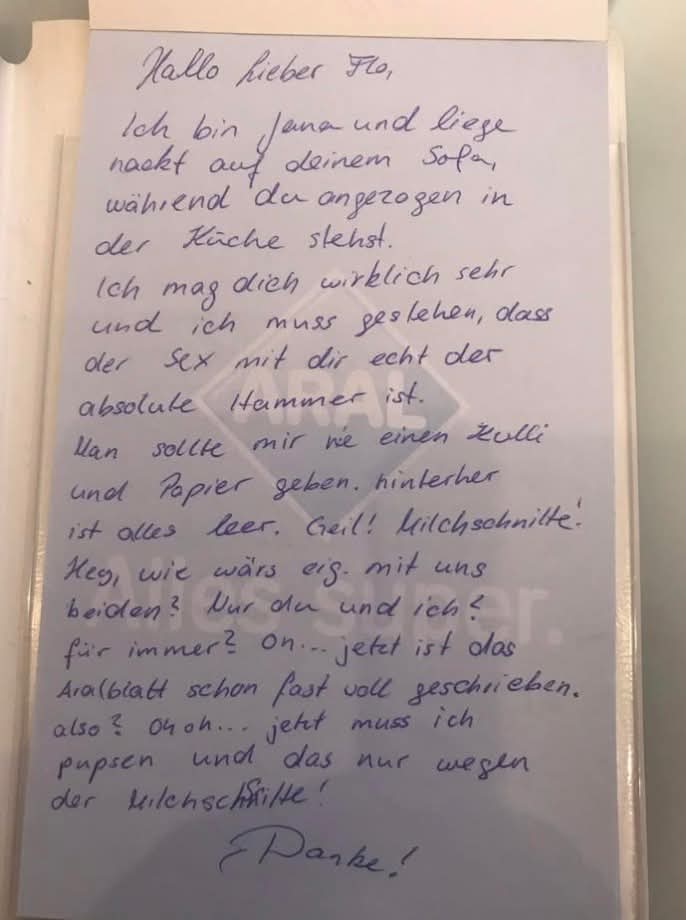 Hallo lieber Flo,
Ich bin Jana und liege
nackt auf deinem Sofa,
während du angezogen in
der Küche stehst.
Ich mag dich wirklich sehr
und ich muss gestehen, dass
der Sex mit dir echt der
absolute Hammer ist.
ARAL
Man sollte mir nie einen Kulli
und Papier geben. hinterher
ist alles leer. Geil! Milchschnitte!
Hey, wie wärs eig. mit uns
beiden? Nur du und ich?
Alles super.
für immer? Oh... jetzt ist das
Aralblatt schon fast voll geschrieben.
also? Oh oh... jetzt muss ich
pupsen und das nur wegen
der Milchschnitte!
Danke!